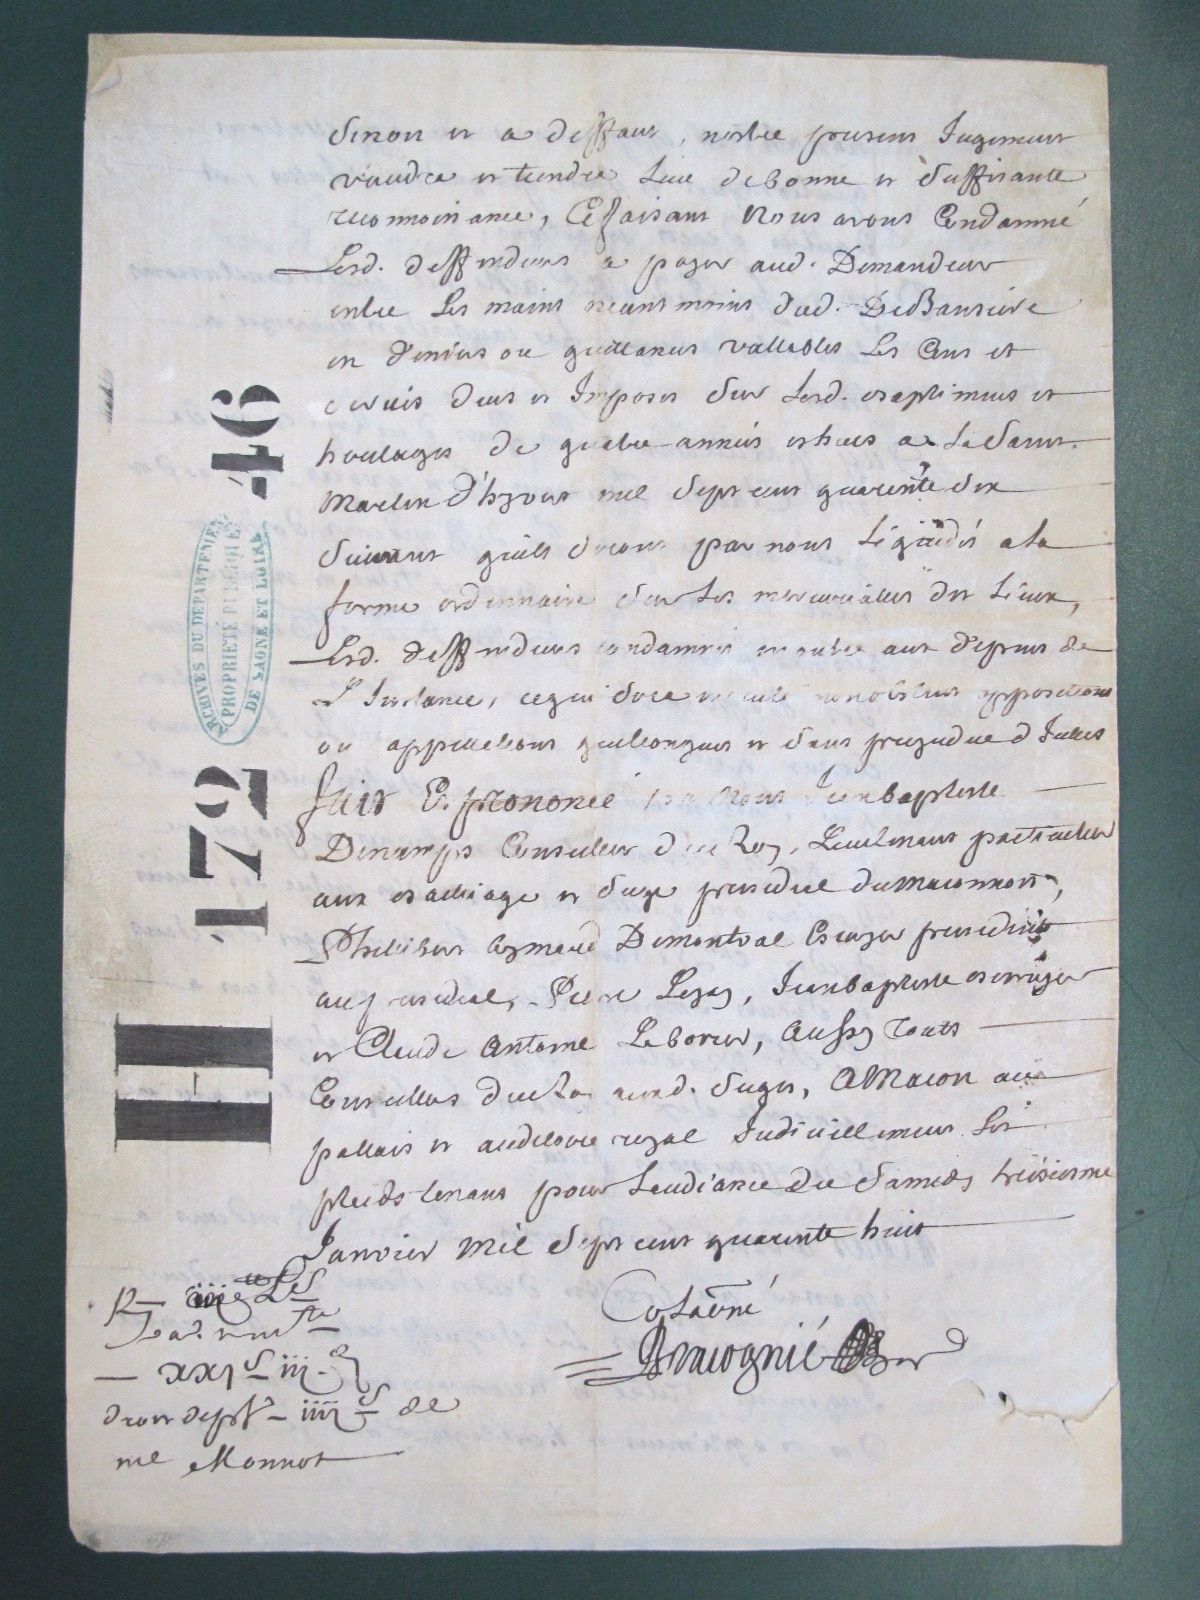 sinon et a deffaut, nostre present Jugement
vaudra et tiendra Lieu de bonne et suffisante
reconnoissance, Ce faisant Nous avons Condamné
Lesd. deffendeurs a payer aud. Demandeur
entre Les mains neantmoins dud. DeBaussiere
en deniers ou quittances vallables Les Cens et
servis deus et Imposés sur Lesd.
de quatre années echues a La Saint
Martin d'hyver mil sept cent quarente six
suivant qu'ils seront par nous Liquidés a la
forme ordinnaire sur Les mercurialles des Lieux,
Lesd. deffendeurs condamnés en outre aux depens de
L'Instance, ce qui sera executé nonobstant oppositions
ou appellations quelconques et sans prejudice d'Icelles
fait Et prononcé par Nous Jean baptiste
Conseiller du Roy, Lieutenant particulier
aux Bailliage et siege presidial du maconnois,
Philibert Demontval Escuyer president
au presidial, Pierre Jean baptiste
et Claude Antoine Laborier, aussy touts
Conseillers du Roy aud. siege, A Macon au
pallais et auditoire royal Judiciellement Les
pleids tenans pour Laudiance du samedy treisiesme
Janvier mil sept cent quarente huit
Collationné
R
xxj s iij d
droit iiij s de
me Monnot
H 172 46
ARCHIVES DU DEPARTEMENT
PROPRIETÉ PUBLIQUE
DE SAONE ET LOIRE